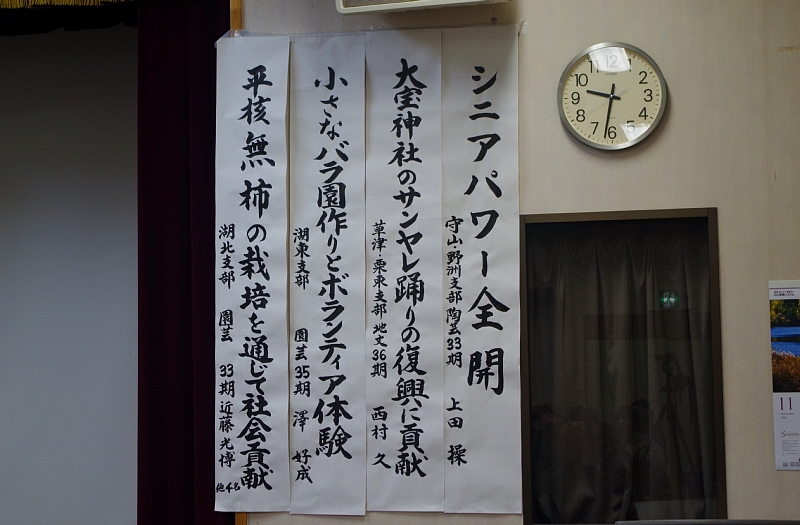 シニアパワー全開
守山・野洲支部 陶芸33期 上田 操
大宝神社のサンヤレ踊りの復興に貢献
草津・栗東支部 地文36期 西村 久
小さなバラ園作りとボランティア体験
湖東支部 園芸35期 澤 好成
平核無柿の栽培を通じて社会貢献
湖北支部 園芸 33期 近藤光博
他4名
12
2
3
4
6
7
8
9
10
11